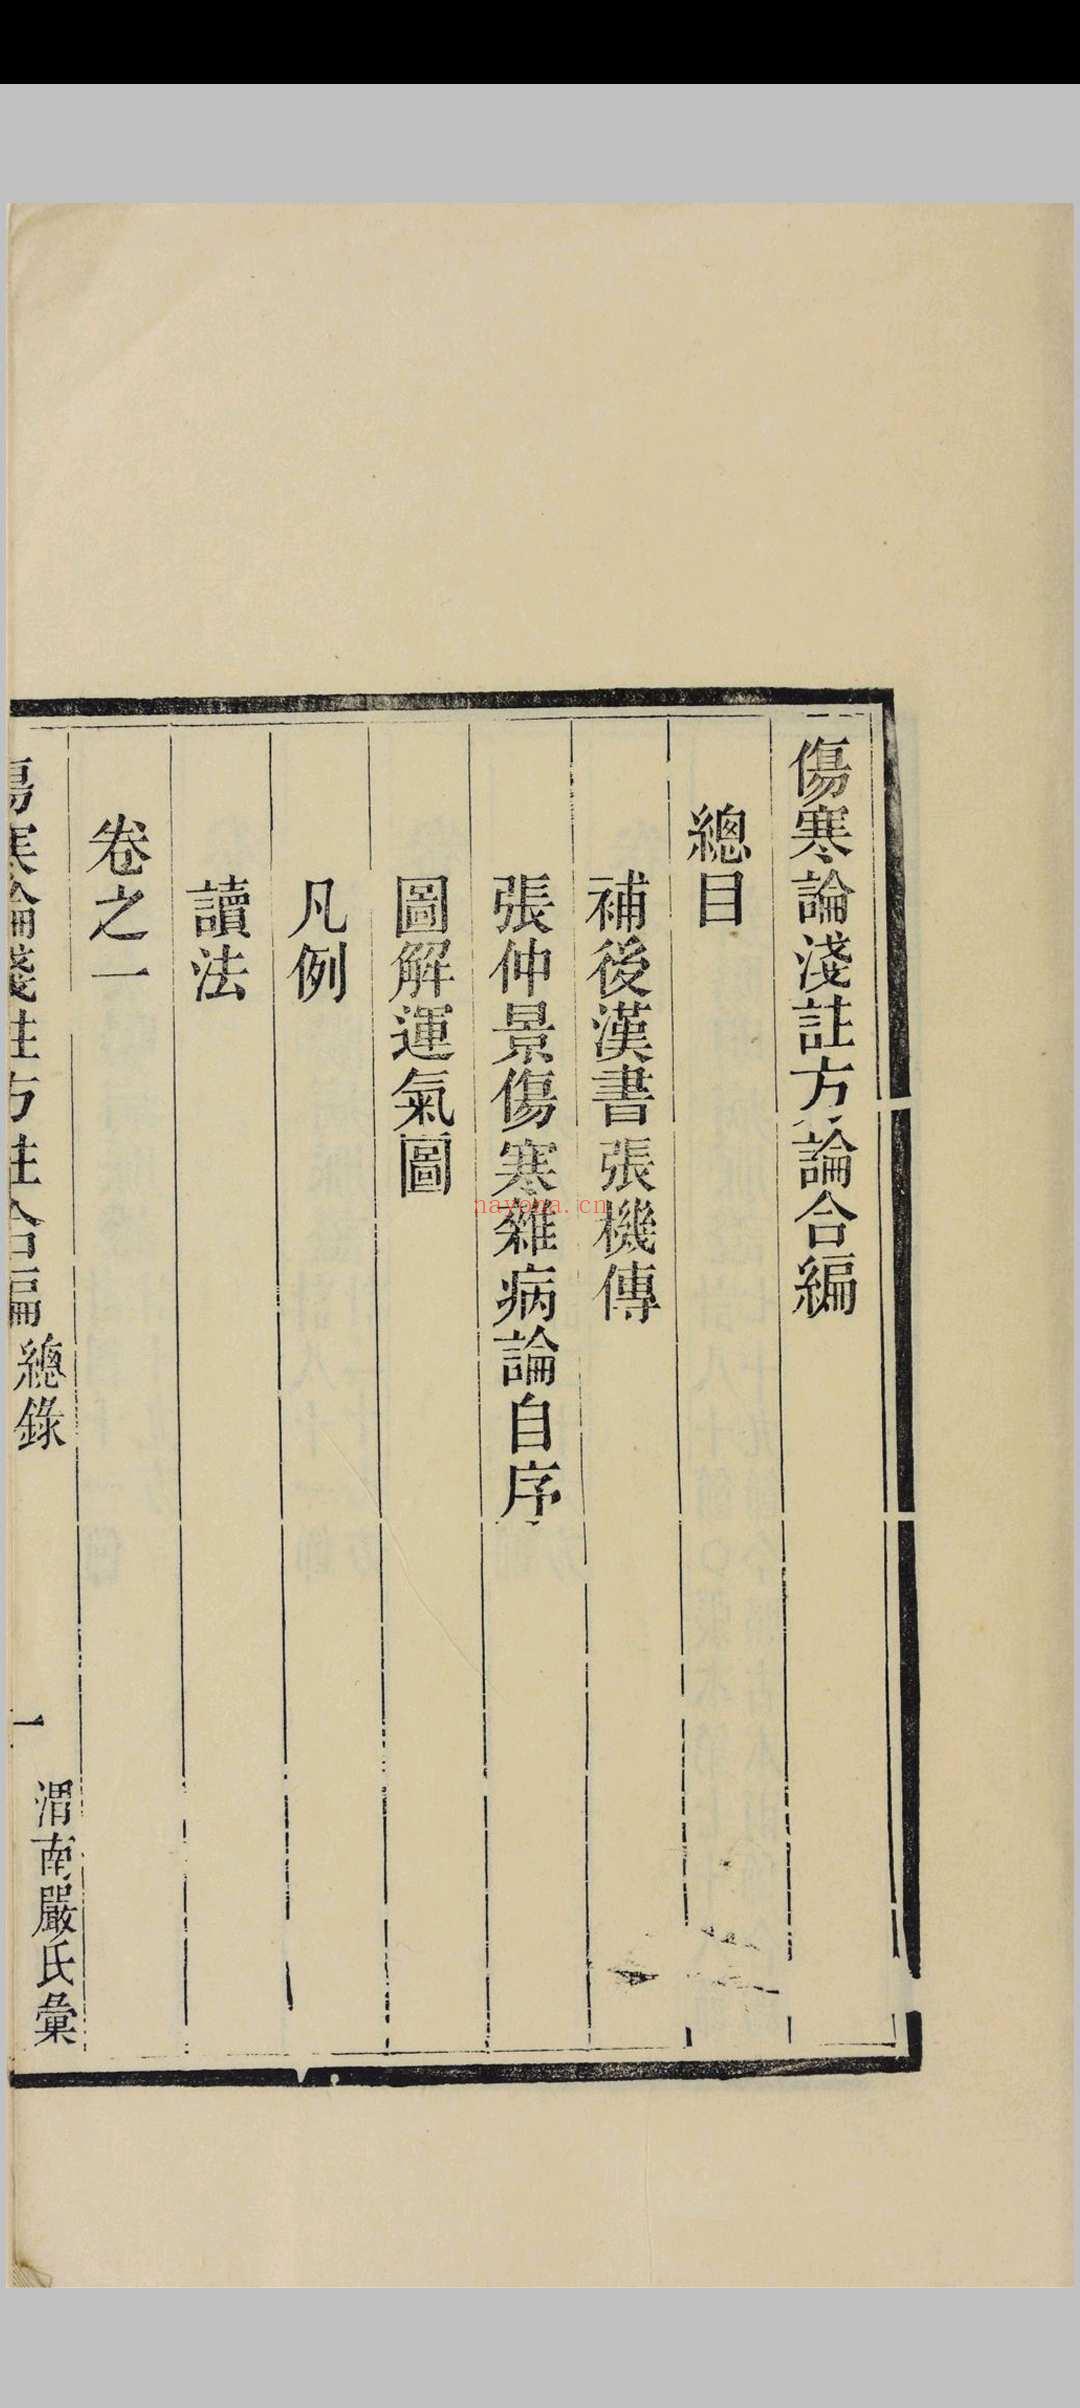 傷寒論淺註方論合編
總目
補後漢書張機傳
張仲景傷寒雜病論自序
圖解運氣圖
凡例
讀法
卷之一
傷寒論淺註方註合編 總錄 一 渭南嚴氏彙
nayona.cn